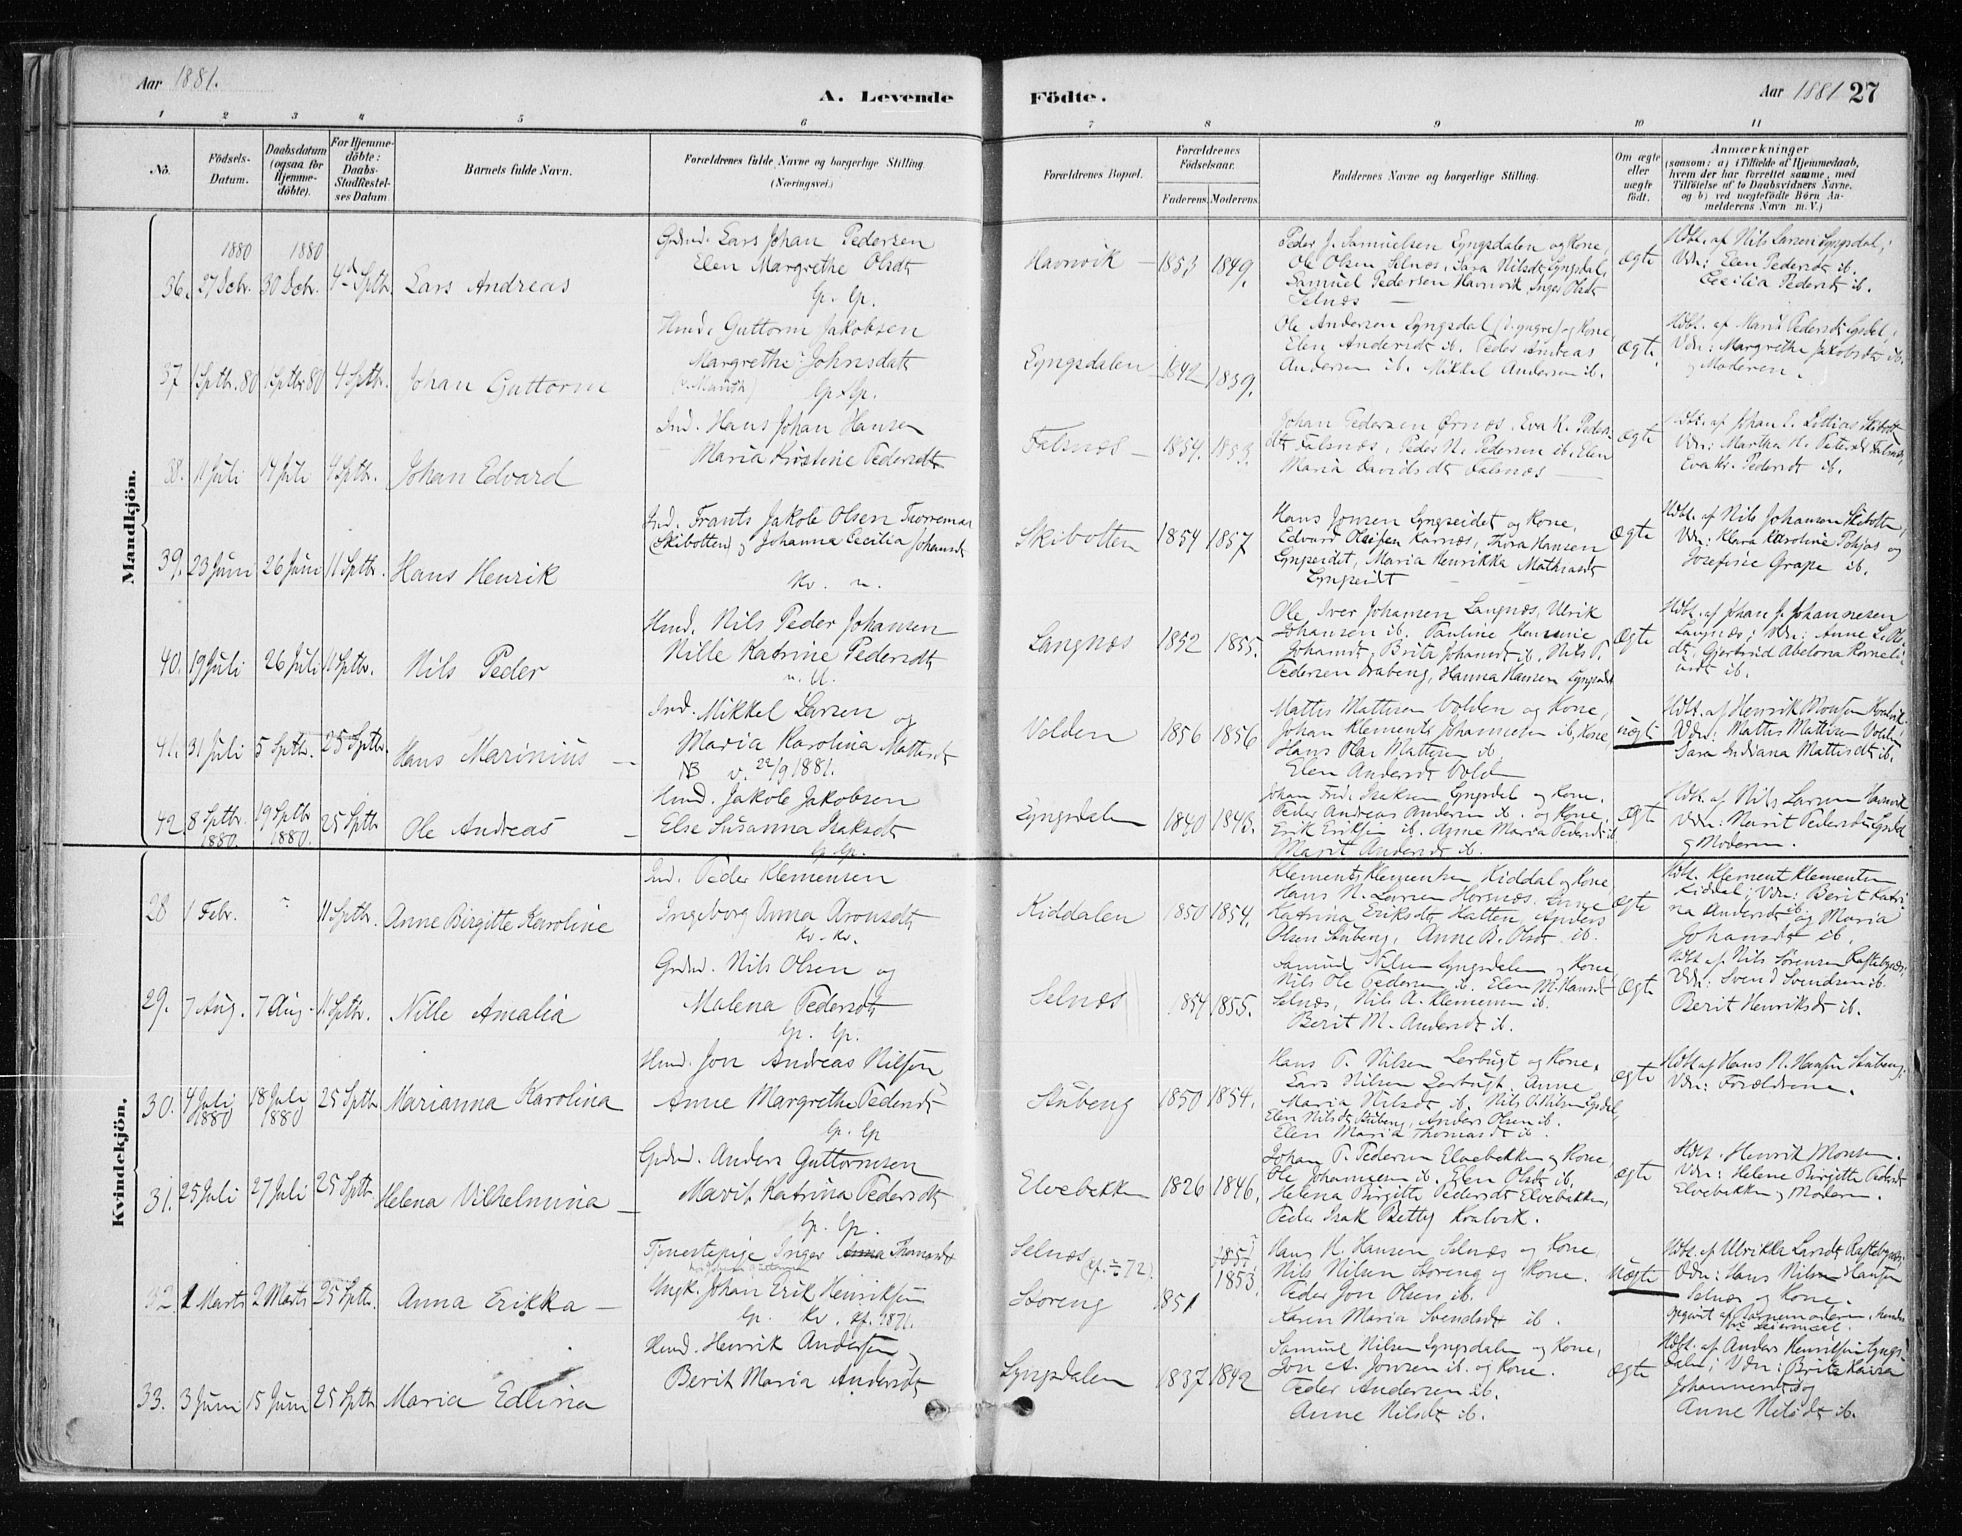 Aar 1881.
A. Levende
Födte.
Aar 1881 27
1 2 3 4 5 6 7 8 9 10 11
No.
Födsels-
Datum.
Daabsdatum
(ogsaa for
Hjemme-
döbte).
For Hjemme-
döbte:
Daabs-
Stadfæstel-
ses Datum.
Barnets fulde Navn.
Forældrenes fulde Navne og borgerlige Stilling
(Næringsvei.)
Forældrenes Bopæl.
Forældrenes
Födselsaar.
Faderens. Moderens.
Faddernes Navne og borgerlige Stilling.
Om ægte
eller
uægte
födt.
Anmærkninger
(saasom: a) i Tilfælde af Hjemmedaab,
hvem der har forrettet samme, med
Tilföielse af to Daabsvidners Navne,
og b) ved uægtefödte Börn An-
melderens Navn m. V.)
Mandkjön.
1880 1880
36. 27 Dcbr. 30 Dcbr. 4d Sptbr. Lars Andreas
Lars Johan Pedersen
Elen Margrethe Olsdt
Lp. Lp.
Havnvik 1853 1849.
Peder J. Samuelsen Lyngsdalen og Kone,
Ole Olsen Selnæs, Sara Nilsdt Lyngsdal,
Samuel Pedersen Havnvik, Inger Olsdt
Selnæs
ægte
Hdbt. af Nils Larsen Lyngsdal;
Vdn: Elen Pedersdt ib.
Cecilia Pedersdt ib.
37. 1 Sptbr. 80 1 Sptbr. 80 4 Sptbr. Johan Guttorm
Hmd. Guttorm Jakobsen
Margrethe Johnsdatt
Lp. Lp.
Lyngsdalen 1842 1839.
Ole Andersen Lyngsdal (d. yngre) og Kone,
Elen Andersdt ib. Peder Andreas
Andersen ib. Mikkel Andersen ib.
ægte
Hdbt. af Marit Pedersdt Lgsdal;
Vdn: Margrethe Jakobsdt ib.
og Moderen.
38. 11 Juli 14 Juli 4 Sptbr. Johan Edvard
Ind. Hans Johan Hansen
Maria Kirstine Pedersdt
Falsnæs 1854. 1853.
Johan Pedersen Ørnæs, Eva K. Peders-
dt Falsnæs, Peder N. Pedersen ib. Elen
Maria Davidsdt Falsnæs
ægte
Hdbt. af Johan E. Skibott
Vdn: Martha N. Petersdt Falsnæs,
Eva Kr. Pedersdt ib.
39. 23 Juni 26 Juni 11 Sptbr. Hans Henrik
Ind. Frants Jakob Olsen
(Skibotten) og Johanna Cecilia Johansdt
Kv. n.
Skibotten 1854 1857
Hans Jonsen Lyngseidet og Kone,
Edvard Olsen Karnæs, Thora Hansen
Lyngseidet, Maria Henrikka Mathiasdt
Lyngseidt
ægte
Hdbt. af Nils Johansen Skibotten,
Vdn: Klara Karoline Pohjas og
Josefine Grape ib.
40. 19 Juli 26 Juli 11 Sptbr. Nils Peder
Hmd. Nils Peder Johansen
Nille Katrine Pedersdt
Langnæs 1852 1855.
Ole Iver Johansen Langnæs, Ulrik
Johansen ib. Pauline
Johansdt, Brita Johansdt ib, Nils P.
Pedersen, Hanna Hansen
ægte
Hdbt. af Johan J. Johannesen
Langnæs; Vdn: Anne
dt, Gjertrud Abelona Korneli-
usdt ib.
41. 31 Juli 5 Sptbr. 25 Sptbr. Hans Marinius
Ind. Mikkel Larsen og
Maria Karolina Mattisdt
NB v. 22/9 1881.
Volden 1856 1856
Mattis Mattisen Volden og Kone,
Johan Klements Johannesen ib, Kone,
Hans Olai Mattisen ib
Elen Andersdt Volden
uægte
Hdbt. af Henrik Monsen Kvalvik.
Vdn: Mattis Mattisen Volden,
Sara Indiana Mattisdt ib.
42. 8 Sptbr. 1880 19 Sptbr 1880. 25 Sptbr Ole Andreas
Hmd. Jakob Jakobsen
Else Susanna Isaksdt
Lp. Lp.
Lyngsdalen 1840 1843.
Johan Fred. Isaksen Lyngsdal og Kone.
Peder Andreas Andersen ib. og Kone,
Erik Eriksen ib. Anne Maria Pedersdt ib
Marit Andersdt ib.
ægte
Hdbt. af Nils Larsen Havnvik
Vdn. Marit Pedersdt Lgsdal
og Moderen.
Kvindekjön.
28 1 Febr. 11 Sptbr. Anne Birgitte Karoline
Ind. Peder Klemensen
Ingeborg Anna Aronsdt
Kv. Kv.
Kiddalen 1850 1854.
Klement Klementsen Kiddal og Kone,
Hans N. Larsen Horsnæs,
Katrina Eriksdt Hatten, Anders
Olsen Stubeng, Anne B. Olsdt ib.
ægte
Hdbt. Klement Klementsen
Kiddal; Vdn: Berit Katri-
na Andersdt ib og Maria
Johansdt ib.
29. 7 Aug. 7 Aug. 11 Sptbr. Nille Amalia
Nils Olsen og
Malena Pedersdt
Lp. Lp.
Selnæs 1854 1855.
Samuel Nilsen Lyngsdalen og Kone
Nils Ole Pedersen ib. Elen M. Hansdt
Selnæs, Nils A. Klemensen ib.
Berit M. Andersdt ib.
ægte
Hdbt. af Nils Sörensen Raftebynæs;
Vdn: Svend Svendsen ib.
Berit Henriksdt ib.
30. 4 Juli 1880 18 Juli 1880 25 Sptbr. Marianna Karolina
Hmd. Jon Andreas Nilsen
Anne Margrethe Pedersdt
Lp. Lp
Stubeng 1850 1854.
Hans P. Nilsen Lerbugt og Kone.
Lars Nilsen Lerbugt. Anne
Maria Nilsdt ib. Nils O. Nilsen Lgsdal,
Elen Nilsdt Stubeng, Anders Olsen ib.
Elen Maria Thomasdt ib.
ægte
Hdbt. af Hans N. Hansen Stubeng;
Vdn: Forældrene.
31. 25 Juli 27 Juli 25 Sptbr. Helena Vilhelmina
Anders Guttormsen
Marit Katrina Pedersdt
Lp. Lp.
Elvebakken 1826 1846.
Johan P. Pedersen Elvebakken og Kone
Ole Johannesen ib. Elen Olsdt ib.
Helena Birgitte Pedersdt Elvebakken,
Peder Isak Betty Kvalvik.
ægte
Hdbt. Henrik Monsen.
Vdn: Helene Birgitte Pedersdt
Elvebakken og Moderen.
32. 1 Marts 2 Marts 25 Sptbr. Anna Erikka
Tjenestepige Inger Anna Thomasdt
Ungk. Johan Erik Henriksen
Lp. Kv. kf. 1871.
Selnæs (kf. 72).
Storeng 1851
1851
1853.
Hans N. Hansen Selnæs og Kone
Nils Nilsen Storeng og Kone.
Peder Jon Olsen ib.
Karen Maria Svendsdt ib.
uægte
Hdbt. af Ulrikka Larsdt Raftebynæs;
Vdn: Hans Nilsen Hansen
Selnæs og Kone.
Opgivet af Barnemoderen,
Leiermaal.
33. 3 Juni 15 Juni 25 Sptbr Maria Edlina
Hmd. Henrik Andersen og
Berit Maria Andersdt
Lyngsdalen 1837 1842
Samuel Nilsen Lyngsdalen og Kone,
Jon A. Jonsen ib. og Kone.
Peder Andersen ib.
Anne Nilsdt ib.
ægte
Hdbt. af Anders Henriksen Lyngs-
dalen; Vdn: Brita Kaisa
Johannesdt og
Anne Nilsdt ib.